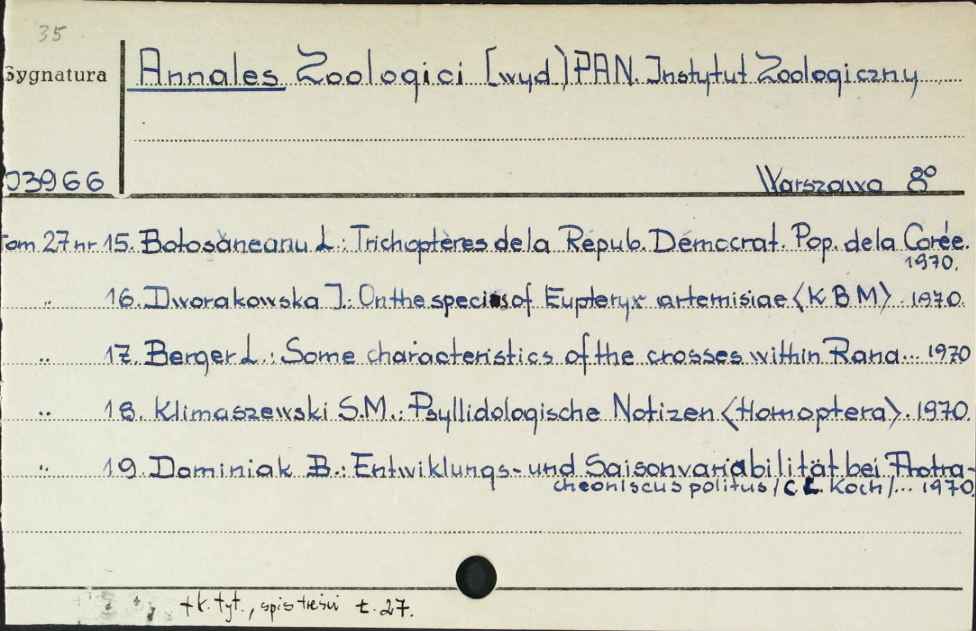 35
Sygnatura
Annales Zoologici [wyd.] PAN. Instytut Zoologiczny
03966
Warszawa 8°
Tom 27 nr 15. Botosăneanu L.: Trichoptères de la Répub. Démocrat. Pop. de la Corée.
1970.
„ 16. Dworakowska J.: On the species of Eupteryx artemisiae <K.B M>. 1970.
„ 17. Berger L.: Some characteristics of the crosses within Rana... 1970
„ 18. Klimaszewski S.M.: Psyllidologische Notizen <Homoptera>. 1970.
„ 19. Dominiak B.: Entwiklungs- und Saisonvariabilität bei Protra-
cheoniscus politus /C L. Koch/... 1970.
+ k. tyt., spis treści t. 27.